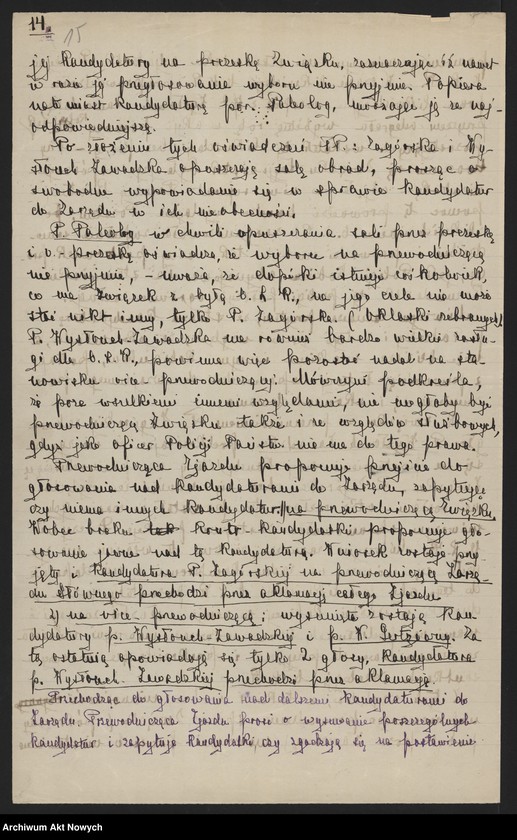 14
15
jej kandydatury na prezeskę Związku, zaznaczając iż nawet
w razie jej przegłosowania wyboru nie przyjmie. Popiera
natomiast kandydaturę por. Paleolog, uważając ją za naj-
odpowiedniejszą.
Po złożeniu tych oświadczeń PP.: Zagórska i Wy-
słouch Zawadzka opuszczają salę obrad, prosząc o
swobodne wypowiadanie się w sprawie kandydatur
do Zarządu w ich nieobecności.
P. Paleolog w chwili opuszczania sali przez prezeskę
i v.-prezeskę oświadcza, że wyboru na przewodniczącą
nie przyjmie, - uważa, że dopóki istnieje cośkolwiek,
co ma związek z byłą O.L.K., na jego czele nie może
stać nikt inny, tylko P. Zagórska. (Oklaski zebranych)
P. Wysłouch-Zawadzka ma również bardzo wielkie zasłu-
gi dla O.L.K., powinna więc pozostać nadal na sta-
nowisku vice-przewodniczącej. Mówczyni podkreśla,
że poza wszelkiemi innemi względami, nie mogłaby być
przewodniczącą Związku także i ze względów służbowych,
gdyż jako oficer Policji Państw. nie ma do tego prawa.
Przewodnicząca Zjazdu proponuje przejście do
głosowania nad kandydaturami do Zarządu, zapytując
czy niema innych kandydatur na przewodniczącą Związku.
Wobec braku kontr-kandydatki proponuje gło-
sowanie jawne nad tą kandydaturą. Wniosek zostaje przy-
jęty i kandydatura P. Zagórskiej na przewodniczącą Zarzą-
du Głównego przechodzi przez aklamację całego Zjazdu.
2) na vice-przewodniczącą wysunięte zostają kan-
dydatury p. Wysłouch-Zawadzkiej i p. W. Za
tą ostatnią opowiadają się tylko 2 głosy, kandydatura
p. Wysłouch-Zawadzkiej przechodzi przez aklamację.
Przechodząc do głosowania nad dalszemi kandydaturami do
Zarządu Przewodnicząca Zjazdu prosi o wysuwanie poszczególnych
kandydatur i zapytuje kandydatki, czy zgadzają się na postawienie
Archiwum Akt Nowych